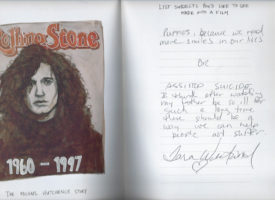 Rolling Stone
1960 - 1997
THE MICHAEL HUTCHENCE STORY
LIST SUBJECTS YOU'D LIKE TO SEE
MADE INTO A FILM
Puppies, because we need
more smiles in our lives
OR
ASSISTED SUICIDE
I think after watching
my father be so ill for
such a long time
there should be a
way we can help
people not suffer